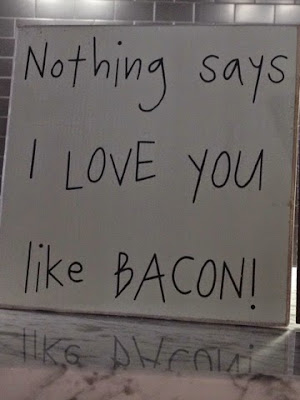 Nothing says
I LOVE YOU
like BACON!